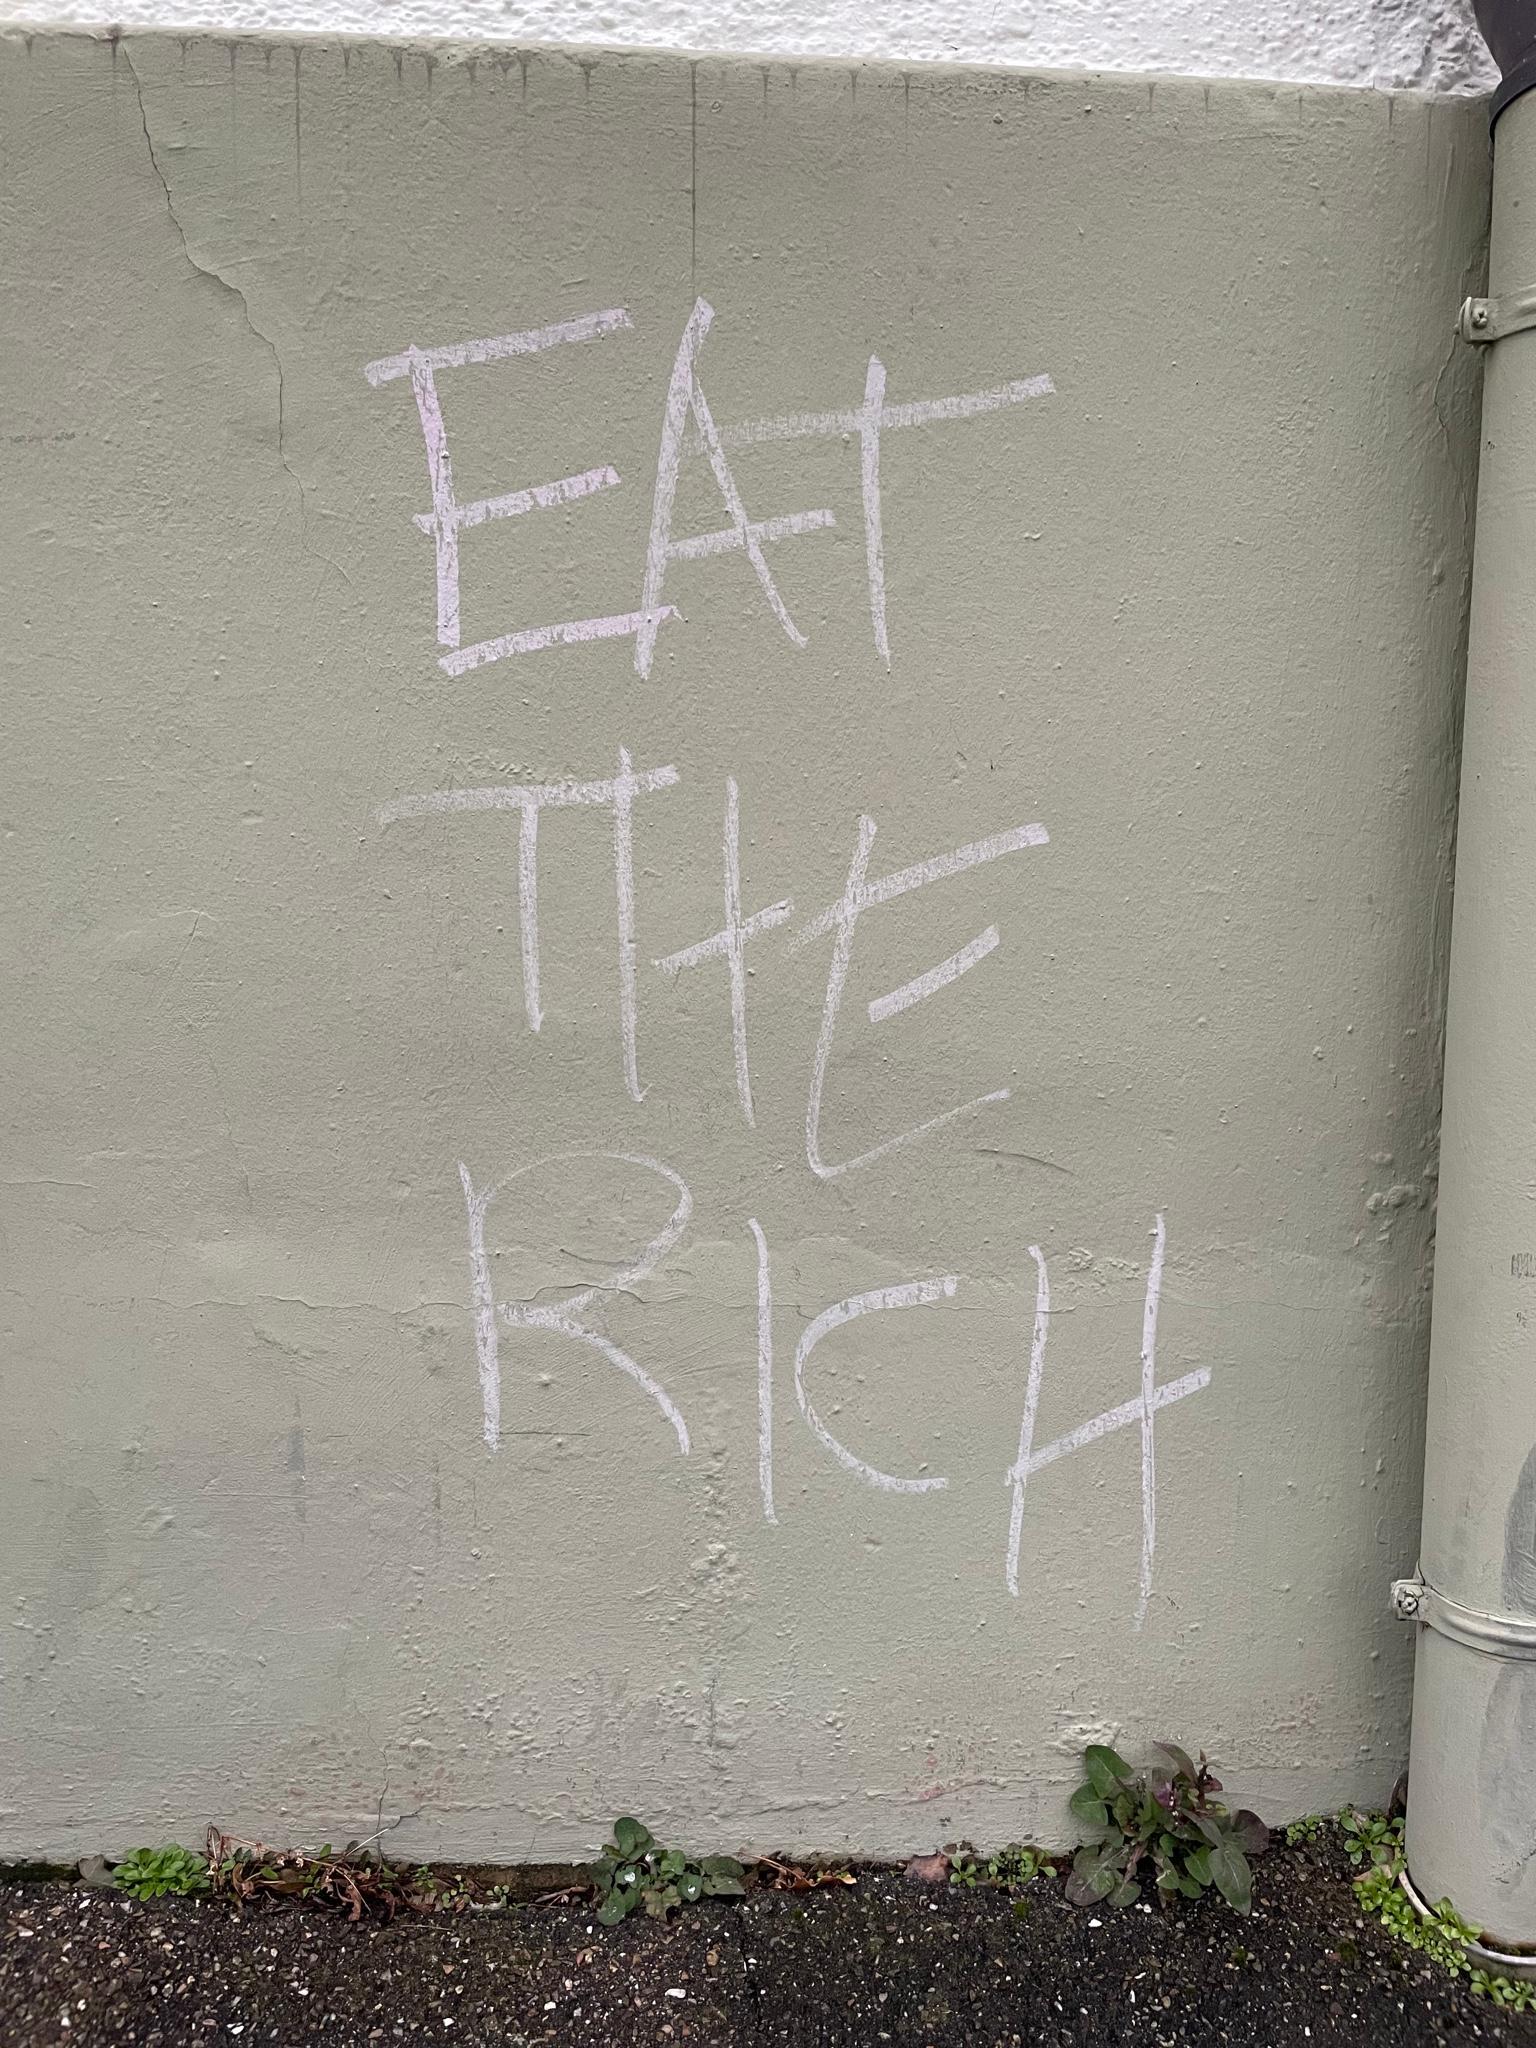 EAT
THE
RICH